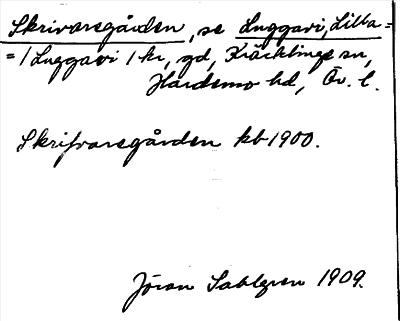 Skrivaregården, se Luggavi, Lilla =
= 1 Luggavi 1 kr, gd, Kräcklinge sn,
Hardemo hd, Ör. l.
Skrifvaregården kb 1900.
Jöran Sahlgren 1909.